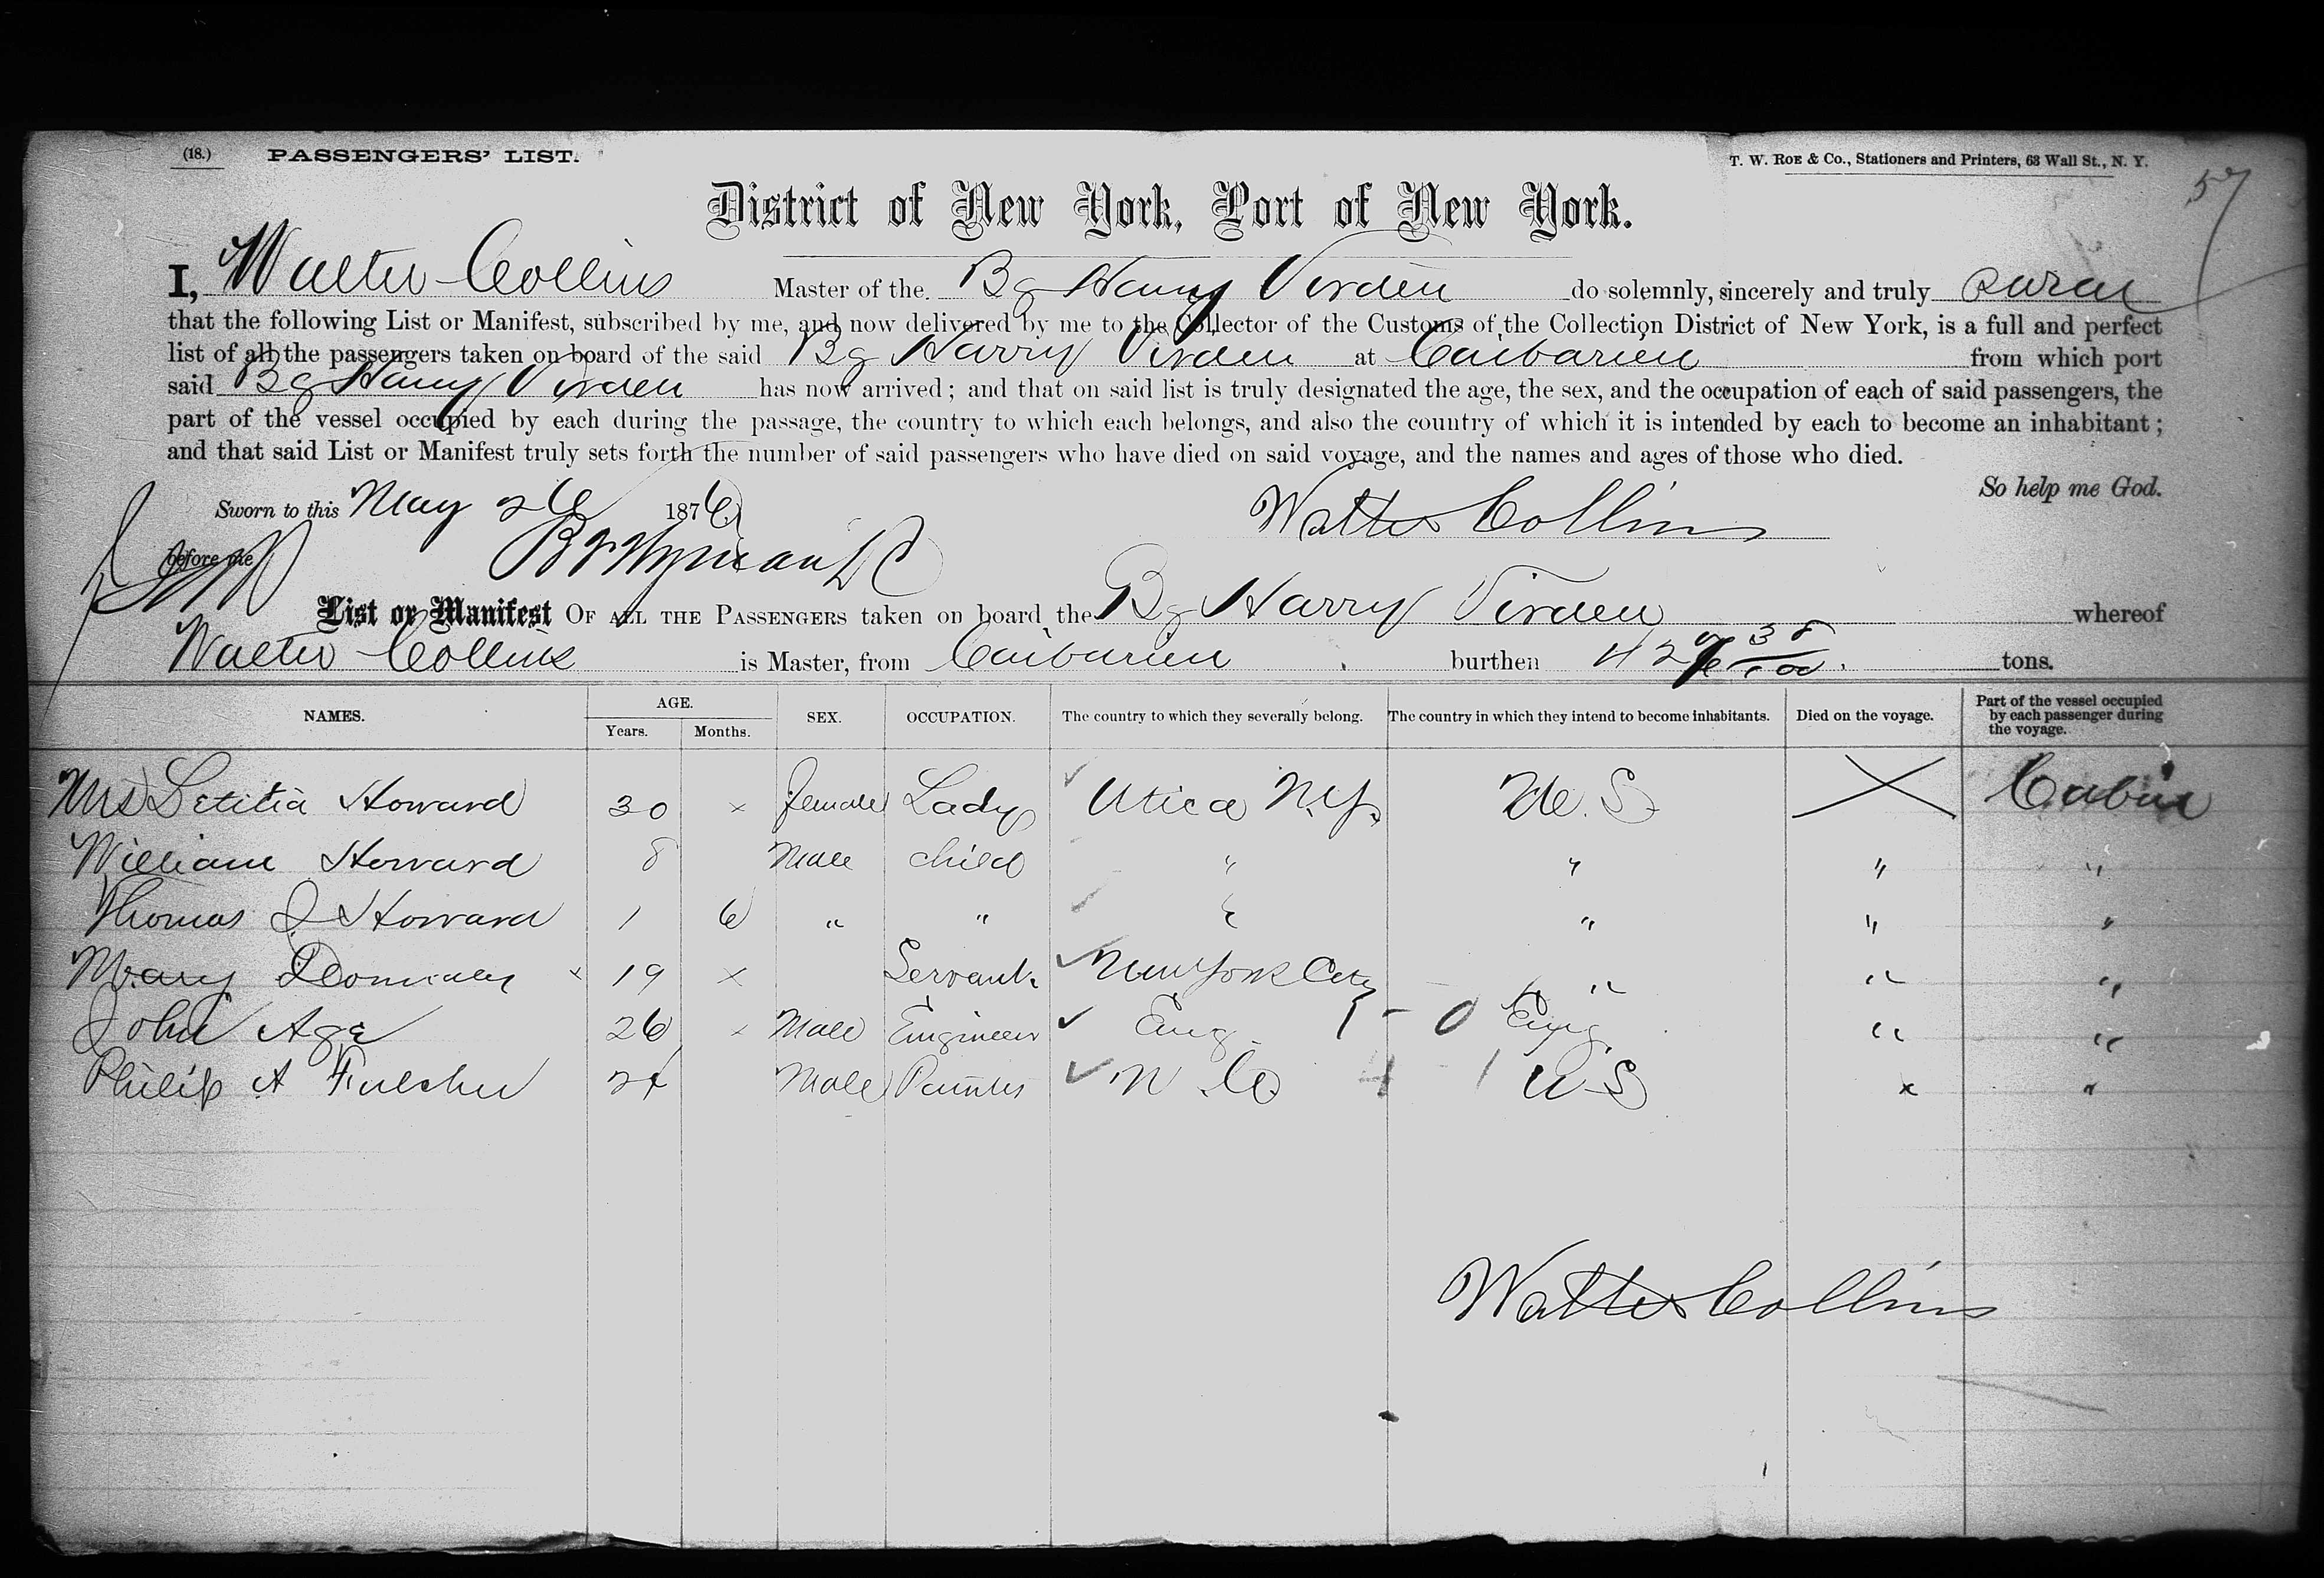 (18.) PASSENGERS' LIST. T. W. ROE & Co., Stationers and Printers, 63 Wall St., N. Y.
57
District of New York, Port of New York.
I, Walter Collins Master of the Bg Harry Virden do solemnly, sincerely and truly swear
that the following List or Manifest, subscribed by me, and now delivered by me to the Collector of the Customs of the Collection District of New York, is a full and perfect
list of all the passengers taken on board of the said Bg Harry Virden at Caibarien from which port
said Bg Harry Virden has now arrived; and that on said list is truly designated the age, the sex, and the occupation of each of said passengers, the
part of the vessel occupied by each during the passage, the country to which each belongs, and also the country of which it is intended by each to become an inhabitant;
and that said List or Manifest truly sets forth the number of said passengers who have died on said voyage, and the names and ages of those who died.
So help me God.
Sworn to this May 26 1876 Walter Collins
before me
List or Manifest OF ALL THE PASSENGERS taken on board the Bg Harry Virden whereof
Walter Collins is Master, from Caibarien burthen tons.
NAMES. AGE. Years. Months. SEX. OCCUPATION. The country to which they severally belong. The country in which they intend to become inhabitants. Died on the voyage. Part of the vessel occupied by each passenger during the voyage.
Mrs Letitia Howard 30 x female Lady Utica N.Y. U. S. X Cabin
William Howard 8 Male child " " " "
Thomas J Howard 1 6 " " " " " "
Mary x 19 x Servant New York City " " "
John Age 26 x Male Engineer Eng. 1 - 0 Eng. " "
Philip A Fulcher Male Painter N. Co 4 - 1 U S x "
Walter Collins